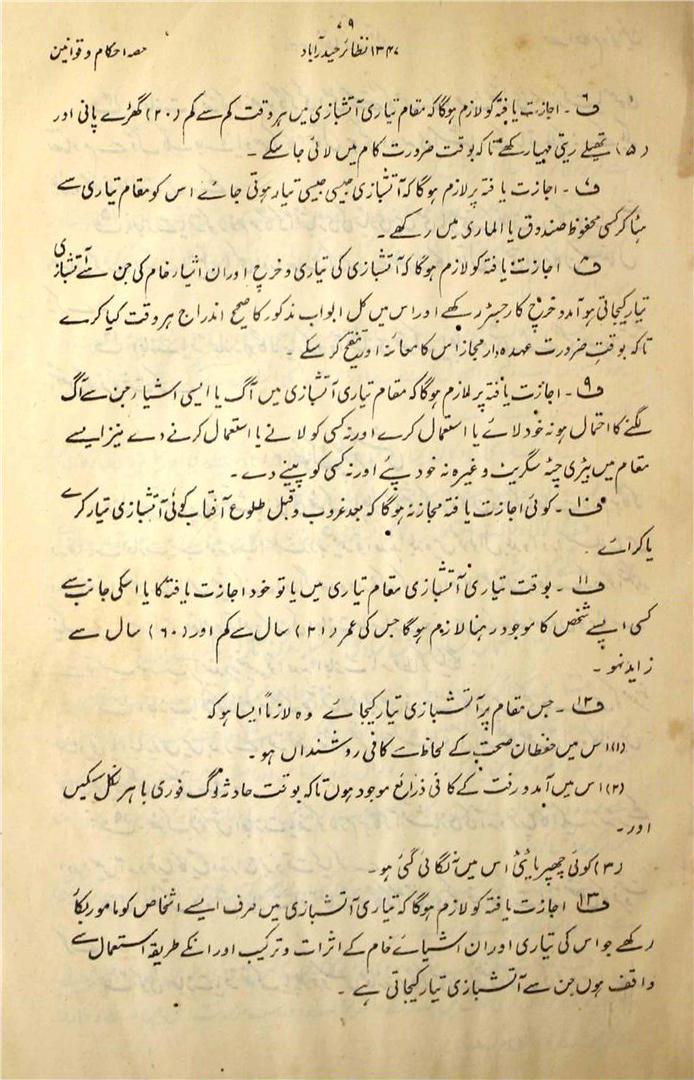 ۷۹
۱۳۴۷ نظائر حیدرآباد حصہ احکام و قوانین
ف۶ ۔ اجازت یافتہ کو لازم ہوگا کہ مقام تیاری آتشبازی میں ہر وقت کم سے کم (۲۰) گھڑے پانی اور
(۵) تھیلے ریتی مہیا رکھے تاکہ بوقت ضرورت کام میں لائی جا سکے ۔
ف۷ ۔ اجازت یافتہ پر لازم ہوگا کہ آتشبازی جیسی جیسی تیار ہوتی جائے اس کو مقام تیاری سے
ہٹا کر کسی محفوظ صندوق یا الماری میں رکھے ۔
ف۸ اجازت یافتہ کو لازم ہوگا کہ آتشبازی کی تیاری و خرچ اور ان اشیار خام کی جن سے آتشبازی
تیار کیجاتی ہو آمد و خرچ کا رجسٹر رکھے اور اس میں کل ابواب مذکور کا صحیح اندراج ہر وقت کیا کرے
تاکہ بوقت ضرورت عہدہ دار مجاز اس کا معائنہ اور تنقیح کر سکے ۔
ف۹ ۔ اجازت یافتہ پر لازم ہوگا کہ مقام تیاری آتشبازی میں آگ یا ایسی اشیار جن سے آگ
لگنے کا احتمال ہو نہ خود لائے یا استعمال کرے اور نہ کسی کو لانے یا استعمال کرنے دے نیز ایسے
مقام میں بیڑی چٹہ سگریٹ وغیرہ نہ خود پئے اور نہ کسی کو پینے دے ۔
ف۱۰ ۔ کوئی اجازت یافتہ مجاز نہ ہوگا کہ بعد غروب و قبل طلوع آفتاب کوئی آتشبازی تیار کرے
یا کرائے
ف۱۱ ۔ بوقت تیاری آتشبازی مقام تیاری میں یا تو خود اجازت یافتہ کا یا اسکی جانب سے
کسی ایسے شخص کا موجود رہنا لازم ہوگا جس کی عمر (۲۱) سال سے کم اور (۶۰) سال سے
زاید نہو ۔
ف۱۲ ۔ جس مقام پر آتشبازی تیار کیجائے وہ لازماً ایسا ہو کہ
(۱) اس میں حفظان صحت کے لحاظ سے کافی روشنداں ہو ۔
(۲) اس میں آمد و رفت کے کافی ذرائع موجود ہوں تاکہ بوقت حادثہ لوگ فوری باہر نکل سکیں
اور ۔
(۳) کوئی چھپر یا ٹٹی اس میں نہ لگائی گئی ہو ۔
ف۱۳ اجازت یافتہ کو لازم ہوگا کہ تیاری آتشبازی میں صرف ایسے اشخاص کو مامور کیا
رکھے جو اس کی تیاری اور ان اشیائے خام کے اثرات و ترکیب اور انکے طریقہ استعمال سے
واقف ہوں جن سے آتشبازی تیار کیجاتی ہے ۔